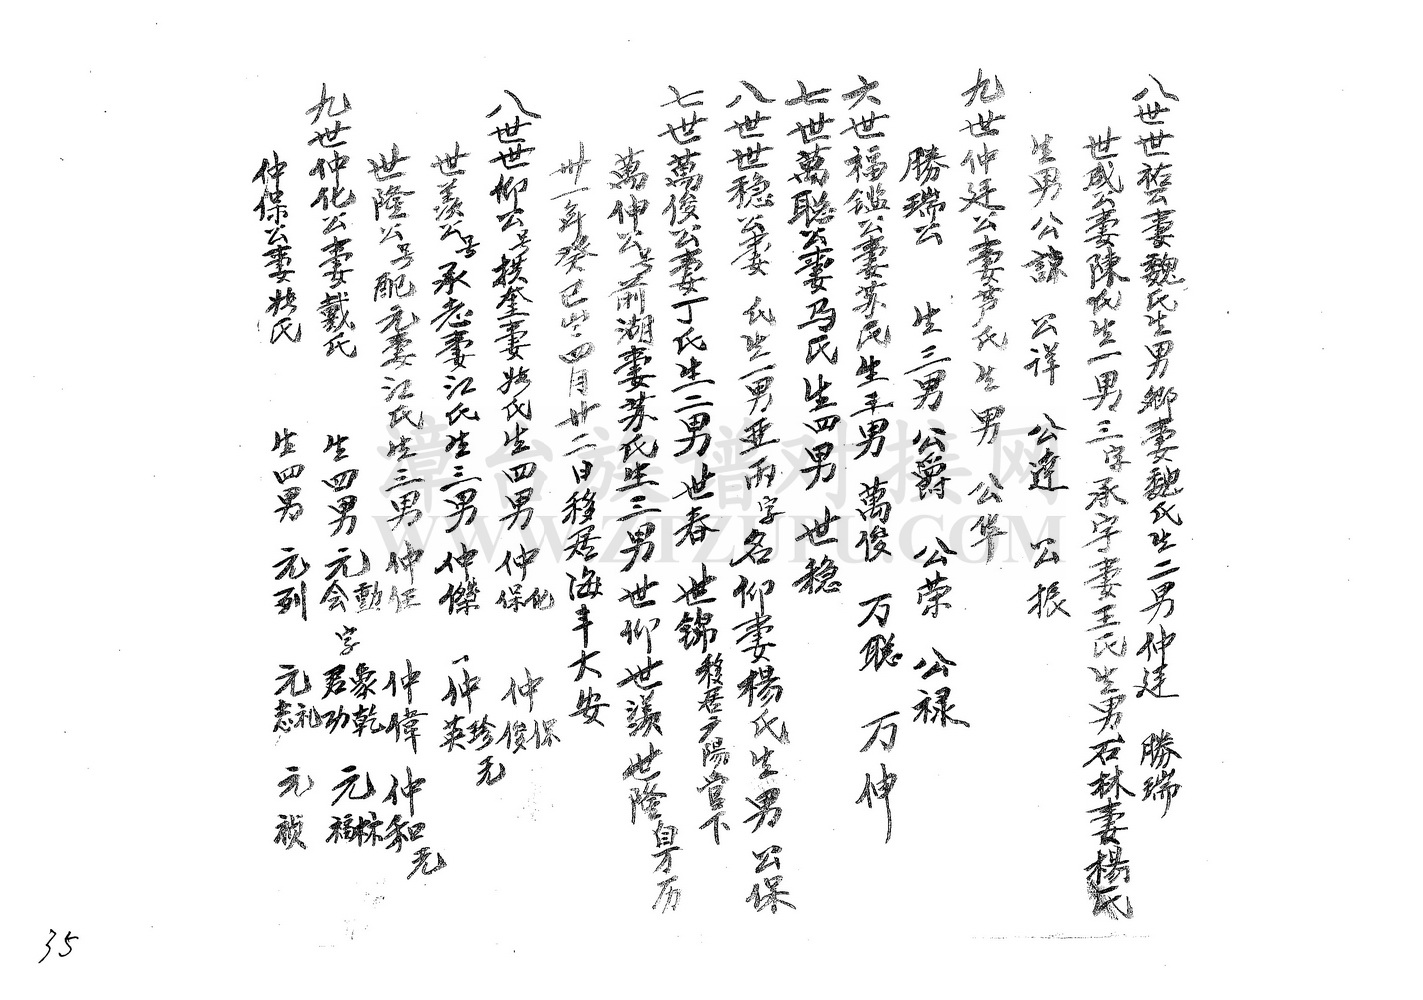 八世世 公妻魏氏生男鄉妻魏氏生二男仲廷 勝瑞
世成公妻陳氏生一男三字承字妻王氏生男石林妻楊氏
生男公諒 公祥 公達 公振
九世仲廷公妻 氏生男公华
勝瑞公 生三男公爵 公荣 公禄
六世福鑑公妻苏氏生三男萬俊 万聪 万伸
七世萬聪公妻马氏生四男世稳
八世世稳公妻 氏生一男亜雨字名仰妻楊氏生男公保
七世萬俊公妻丁氏生二男世春 世錦移居 陽官下
萬伸公号前湖妻苏氏生三男世仰世羡世隆 万历
卅一年癸巳 四月廿二日移居海丰大安
八世世仰公号拱奎妻 氏生四男仲化 仲保 仲俊
世羡公号承志妻江氏生三男仲傑 仲英 珍无
世隆公号配元妻江氏生三男仲任 仲偉 仲和无
九世仲化公妻戴氏 生四男元会 元勳字君功 象乾 元福 林
仲保公妻 氏 生四男元列 元志 礼 元禎
漳台族谱对接网
WWW.ZTZUPU.COM
35